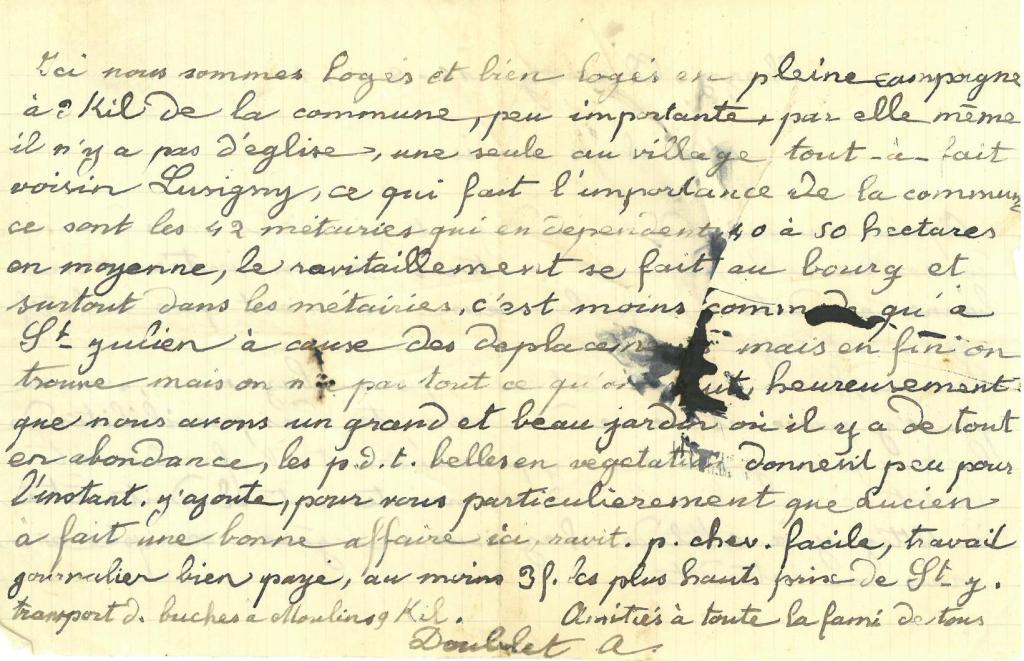 Ici nous sommes logés et bien logés en pleine campagne
à 2 Kil de la commune, peu importante, par elle même
il n'y a pas d'église, une seule au village tout-à-fait
voisin Lusigny, ce qui fait l'importance de la commune
ce sont les 42 métairies qui en dépendent 40 à 50 hectares
en moyenne, le ravitaillement se fait au bourg et
surtout dans les métairies, c'est moins qu'à
St Julien à cause des mais en fin on
trouve mais on pas tout ce heureusement
que nous avons un grand et beau jardin où il y a de tout
en abondance, les p.d.t. belles en donnent peu pour
l'instant. J'ajoute, pour vous particulierement que Lucien
à fait une bonne affaire ici, ravit. p. chev. facile, travail
journalier bien payé, au moins 3f. les plus hauts prix de St J.
transport d. buches à Moulins 9 Kil. Amitiés à toute la fami de tous
Doublet A.